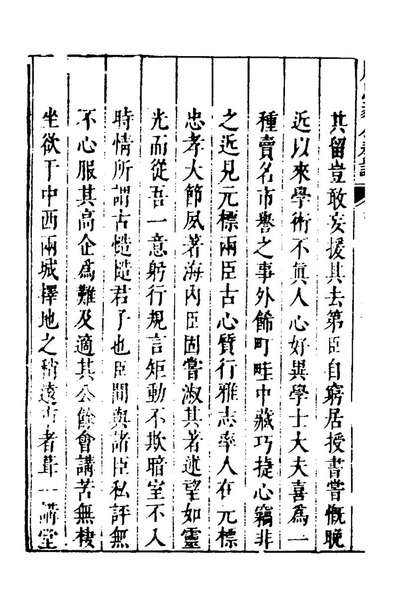 其留豈敢妄援其去第臣自窮居授書嘗慨晚
近以來學術不眞人心好異學士大夫喜爲一
種賣名市譽之事外餙町畦中藏巧捷心竊非
之近見元標兩臣古心質行雅志率人在元標
忠孝大節夙著海內臣固嘗淑其著述望如靈
光而從吾一意躬行規言矩動不欺暗室不入
時情所謂古慥慥君子也臣間與諸臣私評無
不心服其高企爲難及適其公餘會講苦無棲
坐欲于中西兩城擇地之稍遠市者葺一講堂